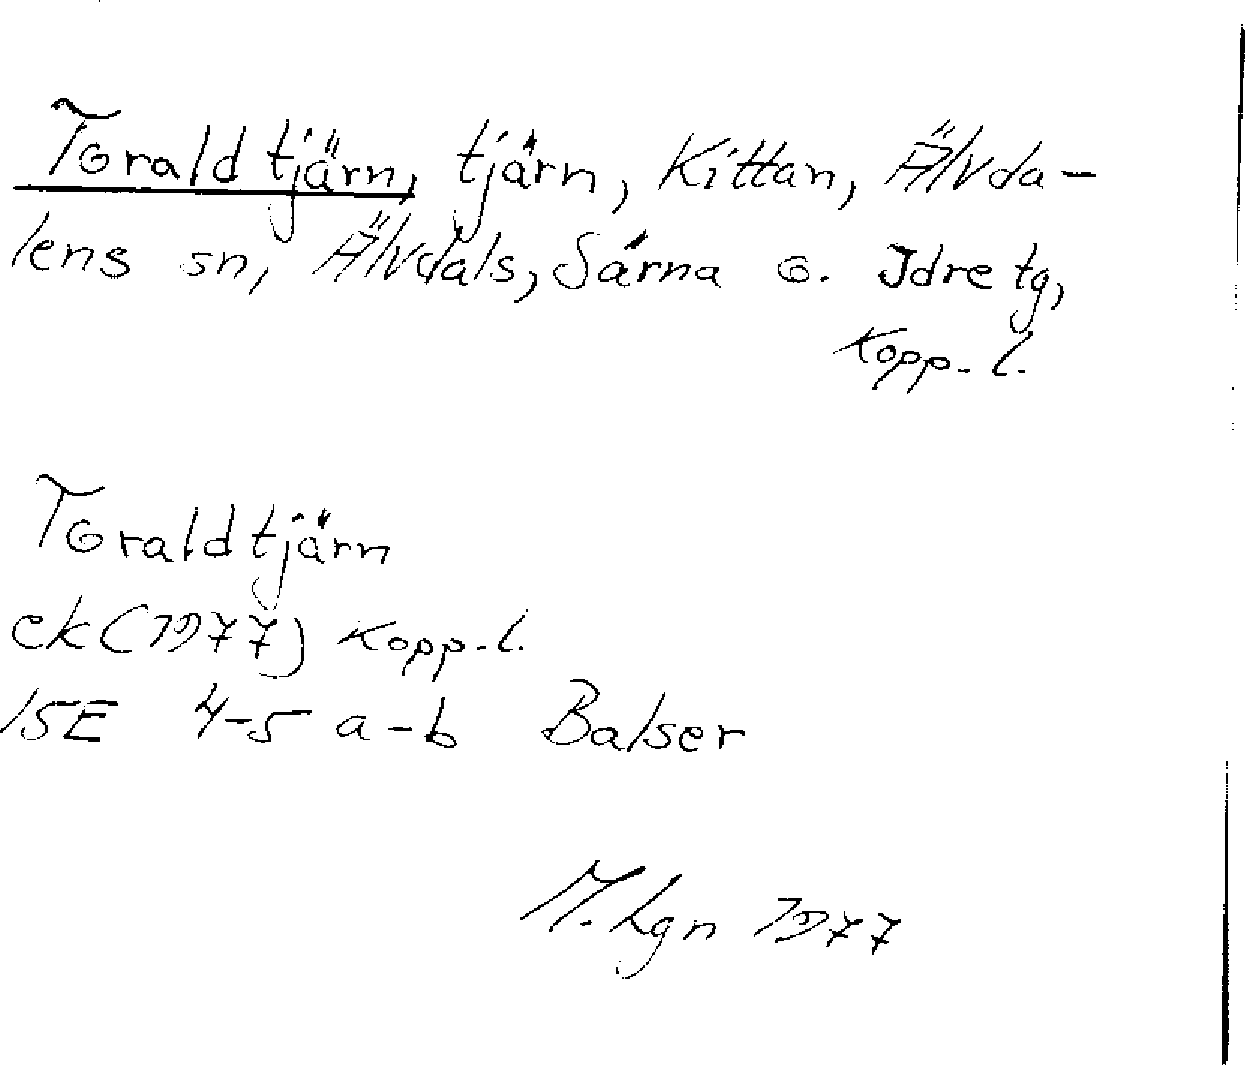 Toraldtjärn, tjärn, Kittan, Älvda-
lens sn, Älvdals, Särna o. Idre tg,
Kopp. l.
Toraldtjärn
ek (1977) Kopp. l.
15E 4-5 a-b Balser
M. Lgn 1977